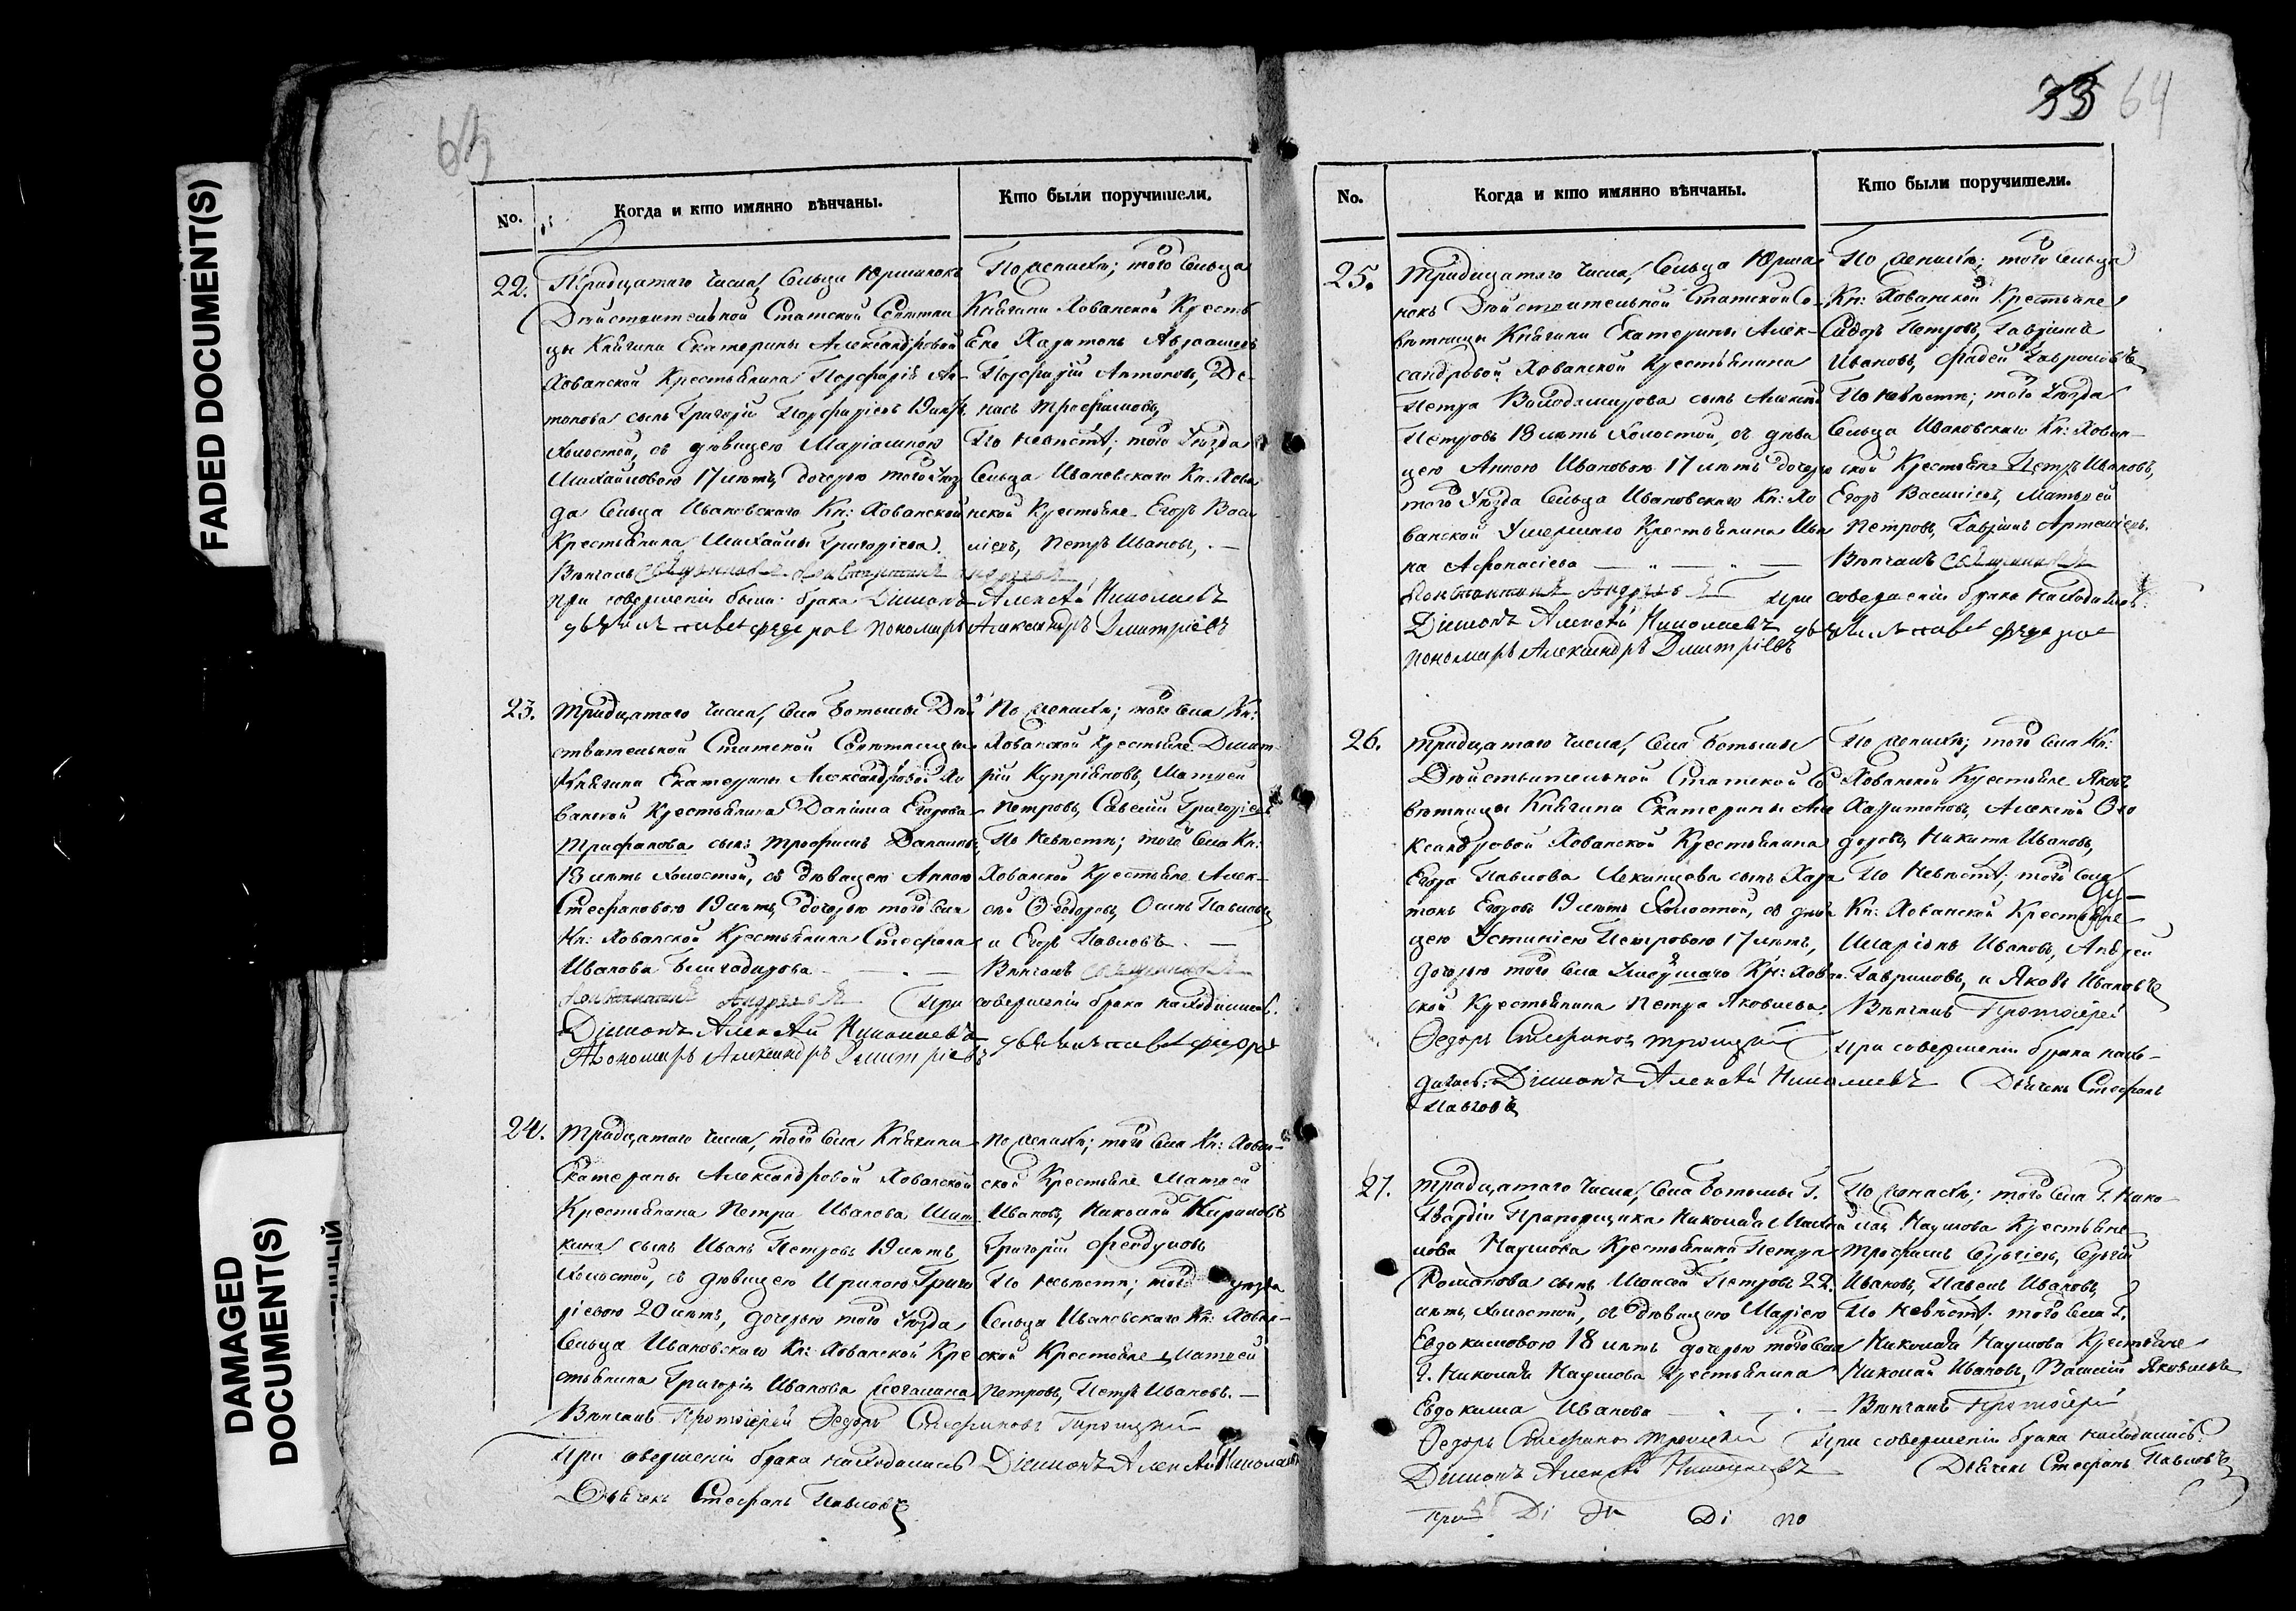 FADED DOCUMENT(S)
DAMAGED
DOCUMENT(S)
63
No.
Когда и кто имянно вѣнчаны.
Кто были поручители.
22.
Тридцатого числа, Сельца Юрманокъ
Дѣйствительной Статской Совѣтни
цы Княгини Екатерины Александровой
Хованской Крестьянина Порфирія Ан-
тонова сынъ Григорій Порфиріевъ 19 лѣтъ
холостой, съ дѣвицею Маріамною
Михайловою 17 лѣтъ, дочерью того Уѣз
да Сельца Ивановскаго Кн: Хованской
Крестьянина Михайлы Григорієва.
Вѣнчалъ священникъ Константинъ Андреевъ
При совершеніи были брака Діаконъ Алексѣй Николаевъ
дьячекъ Федоров Пономарь Александръ Дмитріевъ
По женихѣ; того Сельца
Княгини Хованской Кресть
яне Харитонъ Авраамовъ
Порфирій Антоновъ, Де-
нисъ Трофимовъ,
По невѣстѣ; того Уѣзда
Сельца Ивановскаго Кн. Хова
нской Крестьяне Егоръ Васи
ліевъ, Петръ Ивановъ, . —
23.
Тридцатого числа, Села Ботьмы Дѣй
ствительной Статской Совѣтницы
Княгини Екатерины Александровой Хо
ванской Крестьянина Данила Егорова
Трифанова сынъ Трофимъ Даниловъ,
18 лѣтъ холостой, съ дѣвицею Анною
Стефановою 19 лѣтъ, дочерью того Села
Кн: Хованской Крестьянина Стефана
Иванова Бригадирова — . —
Константинъ Андреевъ При совершеніи брака находились.
Діаконъ Алексѣй Николаевъ
Пономарь Александръ Дмитріевъ
По женихѣ; того Села Кн:
Хованской Крестьяне Дмит-
рій Купріяновъ, Матвей
Петровъ, Савелій Григорієвъ
По невѣстѣ; того Села Кн:
Хованской Крестьяне Алек-
сѣй Ѳеодоровъ, Осипъ Павловъ
и Егоръ Павловъ . —
Вѣнчалъ священникъ
24.
Тридцатого числа, того Села Княгини
Екатерины Александровой Хованской
Крестьянина Петра Иванова Шит
кина сынъ Иванъ Петровъ 19 лѣтъ
холостой, съ дѣвицею Ириною Григо
ріевою 20 лѣтъ, дочерью того Уѣзда
Сельца Ивановскаго Кн: Хованской Кре
стьянина Григорія Иванова
Вѣнчалъ Протоіерей Ѳедоръ Стефановъ Троицкій
При совершеніи брака находились Діаконъ Алексѣй Николаевъ
Дьячекъ Стефанъ Павловъ
По женихѣ; того Села Кн: Хован-
ской Крестьяне Матвей
Ивановъ, Николай Кириловъ
Григорій
По невѣстѣ; того уѣзда
Сельца Ивановскаго Кн: Хован-
ской Крестьяне Матвей
Петровъ, Петръ Ивановъ. —
33 64
No.
Когда и кто имянно вѣнчаны.
Кто были поручители.
25.
Тридцатого числа, Сельца Юрма
нокъ Дѣйствительной Статской Со-
вѣтницы Княгини Екатерины Алек-
сандровой Хованской Крестьянина
Петра Володимирова сынъ Алексѣй
Петровъ 18 лѣтъ холостой, съ дѣви
цею Анною Ивановою 17 лѣтъ дочерью
того Уѣзда Сельца Ивановскаго Кн: Хо
ванской Умершаго Крестьянина Ива
на Афонасіева — . — . —
Константинъ Андреевъ При совершеніи брака находились.
Діаконъ Алексѣй Николаевъ
Пономарь Александръ Дмитріевъ
По женихѣ; того Сельца
Кн: Хованской Крестьяне
Сидоръ Петровъ, Гаврила
Ивановъ, Фадей Гавриловъ
По невѣстѣ; того Уѣзда
Сельца Ивановскаго Кн: Хован-
ской Крестьяне Петръ Ивановъ,
Егоръ Василіевъ, Матвей
Петровъ, Гаврилъ Артемієвъ.
Вѣнчалъ священникъ
26.
Тридцатого числа, Села Ботьмы
Дѣйствительной Статской Со
вѣтницы Княгини Екатерины Але
ксандровой Хованской Крестьянина
Егора Павлова сынъ Хари
тонъ Егоровъ 19 лѣтъ холостой, съ дѣви
цею Устиніею Петровою 17 лѣтъ,
дочерью того Села Умершаго Кн: Хован
ской Крестьянина Петра Яковлева.
Ѳедоръ Стефановъ Троицкій При совершеніи брака нахо-
дились: Діаконъ Алексѣй Николаевъ Дьячекъ Стефанъ
Павловъ
По женихѣ; того Села Кн:
Хованской Крестьяне Яковъ
Харитоновъ, Алексѣй Ѳео
доровъ, Никита Ивановъ,
По невѣстѣ; того Села
Кн: Хованской Крестьяне
Иларіонъ Ивановъ, Андрей
Гавриловъ, и Яковъ Ивановъ
Вѣнчалъ Протоіерей
27.
Тридцатого числа, Села Ботьмы Г.
Гвардіи Прапорщика Николая Михай
лова Наумова Крестьянина Петра
Романова сынъ Моисей Петровъ 22.
лѣтъ, холостой, съ дѣвицею Маріею
Евдокимовою 18 лѣтъ дочерью того Села
Г. Николая Наумова Крестьянина
Евдокима Иванова . — . —
Ѳедоръ Стефановъ Троицкій При совершеніи брака находились:
Діаконъ Алексѣй Николаевъ Дьячекъ Стефанъ Павловъ
По женихѣ; того Села Г. Нико
лая Наумова Крестьяне
Трофимъ Сергіевъ, Сергій
Ивановъ, Павелъ Ивановъ,
По невѣстѣ. того Села Г.
Николая Наумова Крестьяне
Николай Ивановъ, Василій Яковлевъ
Вѣнчалъ Протоіерей